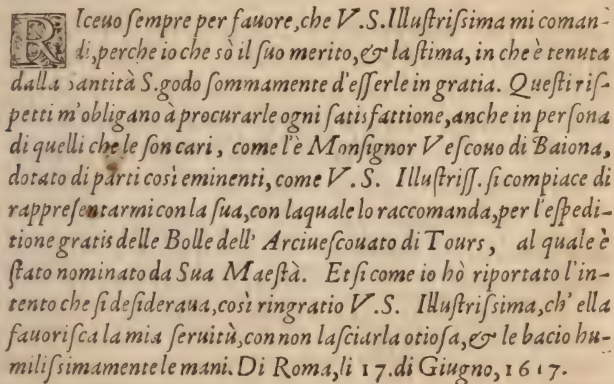 RIceuo sempre per fauore, che V.S.Illustrissima mi coman-
di, perche io che sò il suo merito, & la stima, in che è tenuta
dalla santità S. godo sommamente d'esserle in gratia. Questi ris-
petti m'obligano à procurarle ogni satisfattione, anche in persona
di quelli che le son cari, come l'è Monsignor Vescouo di Baiona,
dotato di parti così eminenti, come V.S. Illustriss. si compiace di
rappresentarmi con la sua, con laquale lo raccomanda, per l'espedi-
tione gratis delle Bolle dell' Arciuescouato di Tours, al quale è
stato nominato da Sua Maestà. Et si come io hò riportato l'in-
tento che si desideraua, così ringratio V.S. Illustrissima, ch' ella
fauorisca la mia seruitù, con non lasciarla otiosa, & le bacio hu-
milissimamente le mani. Di Roma, li 17. di Giugno, 1617.